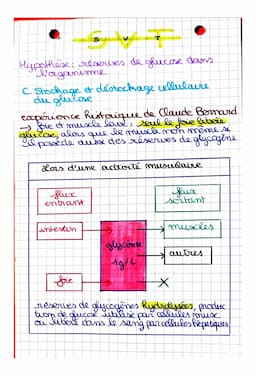 SVT
Hypothèse : réserves de glucose dans
l'organisme
C. Stockage et déstockage cellulaire
du glucose
expérience historique de Claude Bernard
→ foie et muscle lavé : seul le foie libère
glucose alors que le muscle non même s
il possède aussi des réserves de glycogène
Lors d'une activité musculaire
flux
entrant
flux
sortant
intestin
glycémie
1g/L
muscles
autres
foie
X
réserves de glycogènes hydrolysées, produc
tion de glucose utilisé par cellules musc.
ou libéré dans le sang par cellules hépatiques